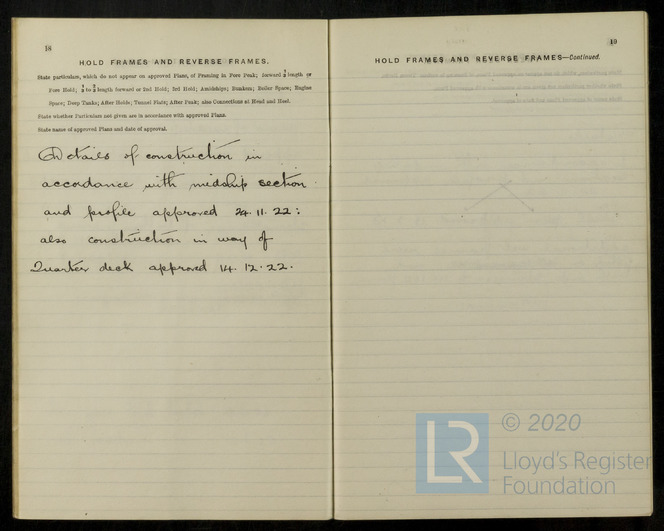 18
HOLD FRAMES AND REVERSE FRAMES.
State particulars, which do not appear on approved Plans, of Framing in Fore Peak; forward 3/5 length or
Fore Hold; to length forward or 2nd Hold; 3rd Hold; Amidships; Bunkers; Boiler Space; Engine
Space; Deep Tanks; After Holds; Tunnel Flats; After Peak; also Connections at Head and Heel.
State whether Particulars not given are in accordance with approved Plans.
State name of approved Plans and date of approval.
Details of construction in
accordance with midship section
and profile approved 24.11.22:
also construction in way of
Quarter deck approved 14.12.22.
19
HOLD FRAMES AND REVERSE FRAMES—Continued.
LR
© 2020
Lloyd's Register
Foundation